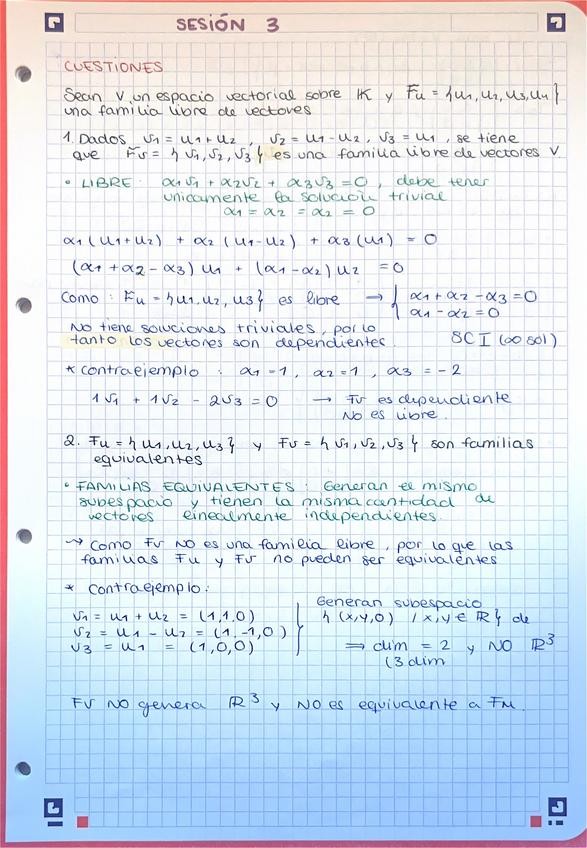 SESIÓN 3
CUESTIONES
Sean V un espacio vectorial sobre IK y Fu = {u1, u2, u3, u4}
una familia libre de vectores
1. Dados v1 = u1+u2, v2 = u1-u2, v3 = u1, se tiene
que Fv = {v1, v2, v3} es una familia libre de vectores V
• LIBRE: α1v1 + α2v2 + α3v3 = 0, debe tener
unicamente la solución trivial
α1 = α2 = α2 = 0
α1(u1+u2) + α2(u1-u2) + α3(u1) = 0
(α1+α2-α3)u1 + (α1-α2)u2 = 0
Como: Fu = {u1, u2, u3} es libre → { α1+α2-α3=0
α1-α2=0
No tiene soluciones triviales, por lo
tanto los vectores son dependientes. SCI (∞ sol)
* contraejemplo: α1=1, α2=1, α3=-2
1v1 + 1v2 - 2v3 = 0 → Fv es dependiente
No es libre.
2. Fu = {u1, u2, u3} y Fv = {v1, v2, v3} son familias
equivalentes
• FAMILIAS EQUIVALENTES: Generan el mismo
subespacio y tienen la misma cantidad de
vectores linealmente independientes.
↝ Como Fv NO es una familia libre, por lo que las
familias Fu y Fv no pueden ser equivalentes
* contraejemplo:
v1 = u1 + u2 = (1,1,0)
v2 = u1 - u2 = (1,-1,0)
v3 = u1 = (1,0,0)
Generan subespacio
{(x,y,0) / x,y ∈ IR} de
⇒ dim = 2 y NO IR³
(3 dim
Fv NO genera IR³ y NO es equivalente a Fu.